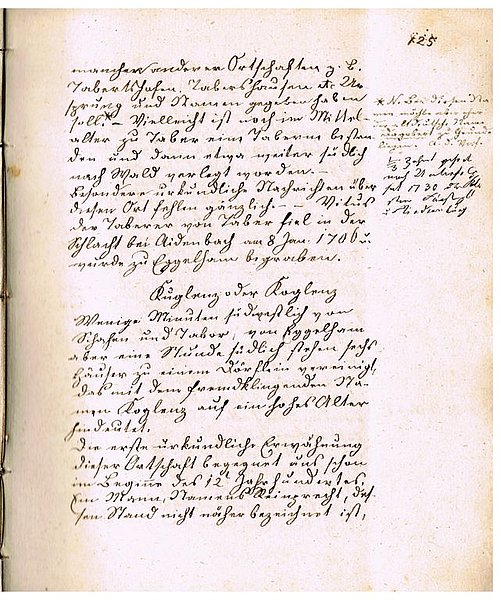 125
mancher anderer Ortschaften z. B.
Tabertshofen, Tabertshausen etc. Ur-
sprung und Namen gegeben haben
soll.* – Vielleicht ist noch im Mittel-
alter zu Taber eine Taberne bestan-
den und dann etwa weiter südlich
nach Wald verlegt worden. –
Besondere urkundliche Nachrichten über
diesen Ort fehlen gänzlich. – – Vitus
der Taberer von Taber fiel in der
Schlacht bei Aidenbach am 8 Jan. 1706 u.
wurde zu Eggelham begraben.
Kuglenz oder Koglenz
Wenige Minuten südwestlich von
Schafen und Taber, von Eggelham
aber eine Stunde südlich stehen sechs
Häuser zu einem Dörflein vereinigt,
das mit dem fremdklingenden Na-
men Koglenz auf ein hohes Alter
hindeutet.
Die erste urkundliche Erwähnung
dieser Ortschaft begegnet uns schon
im Beginne des 12. Jahrhundertes.
Ein Mann, Namens Reinprecht, des-
sen Stand nicht näher bezeichnet ist,
* N. Bei diesen Na-
men möchte
zu Grunde
liegen.
2/3 Zehent
nach
1730